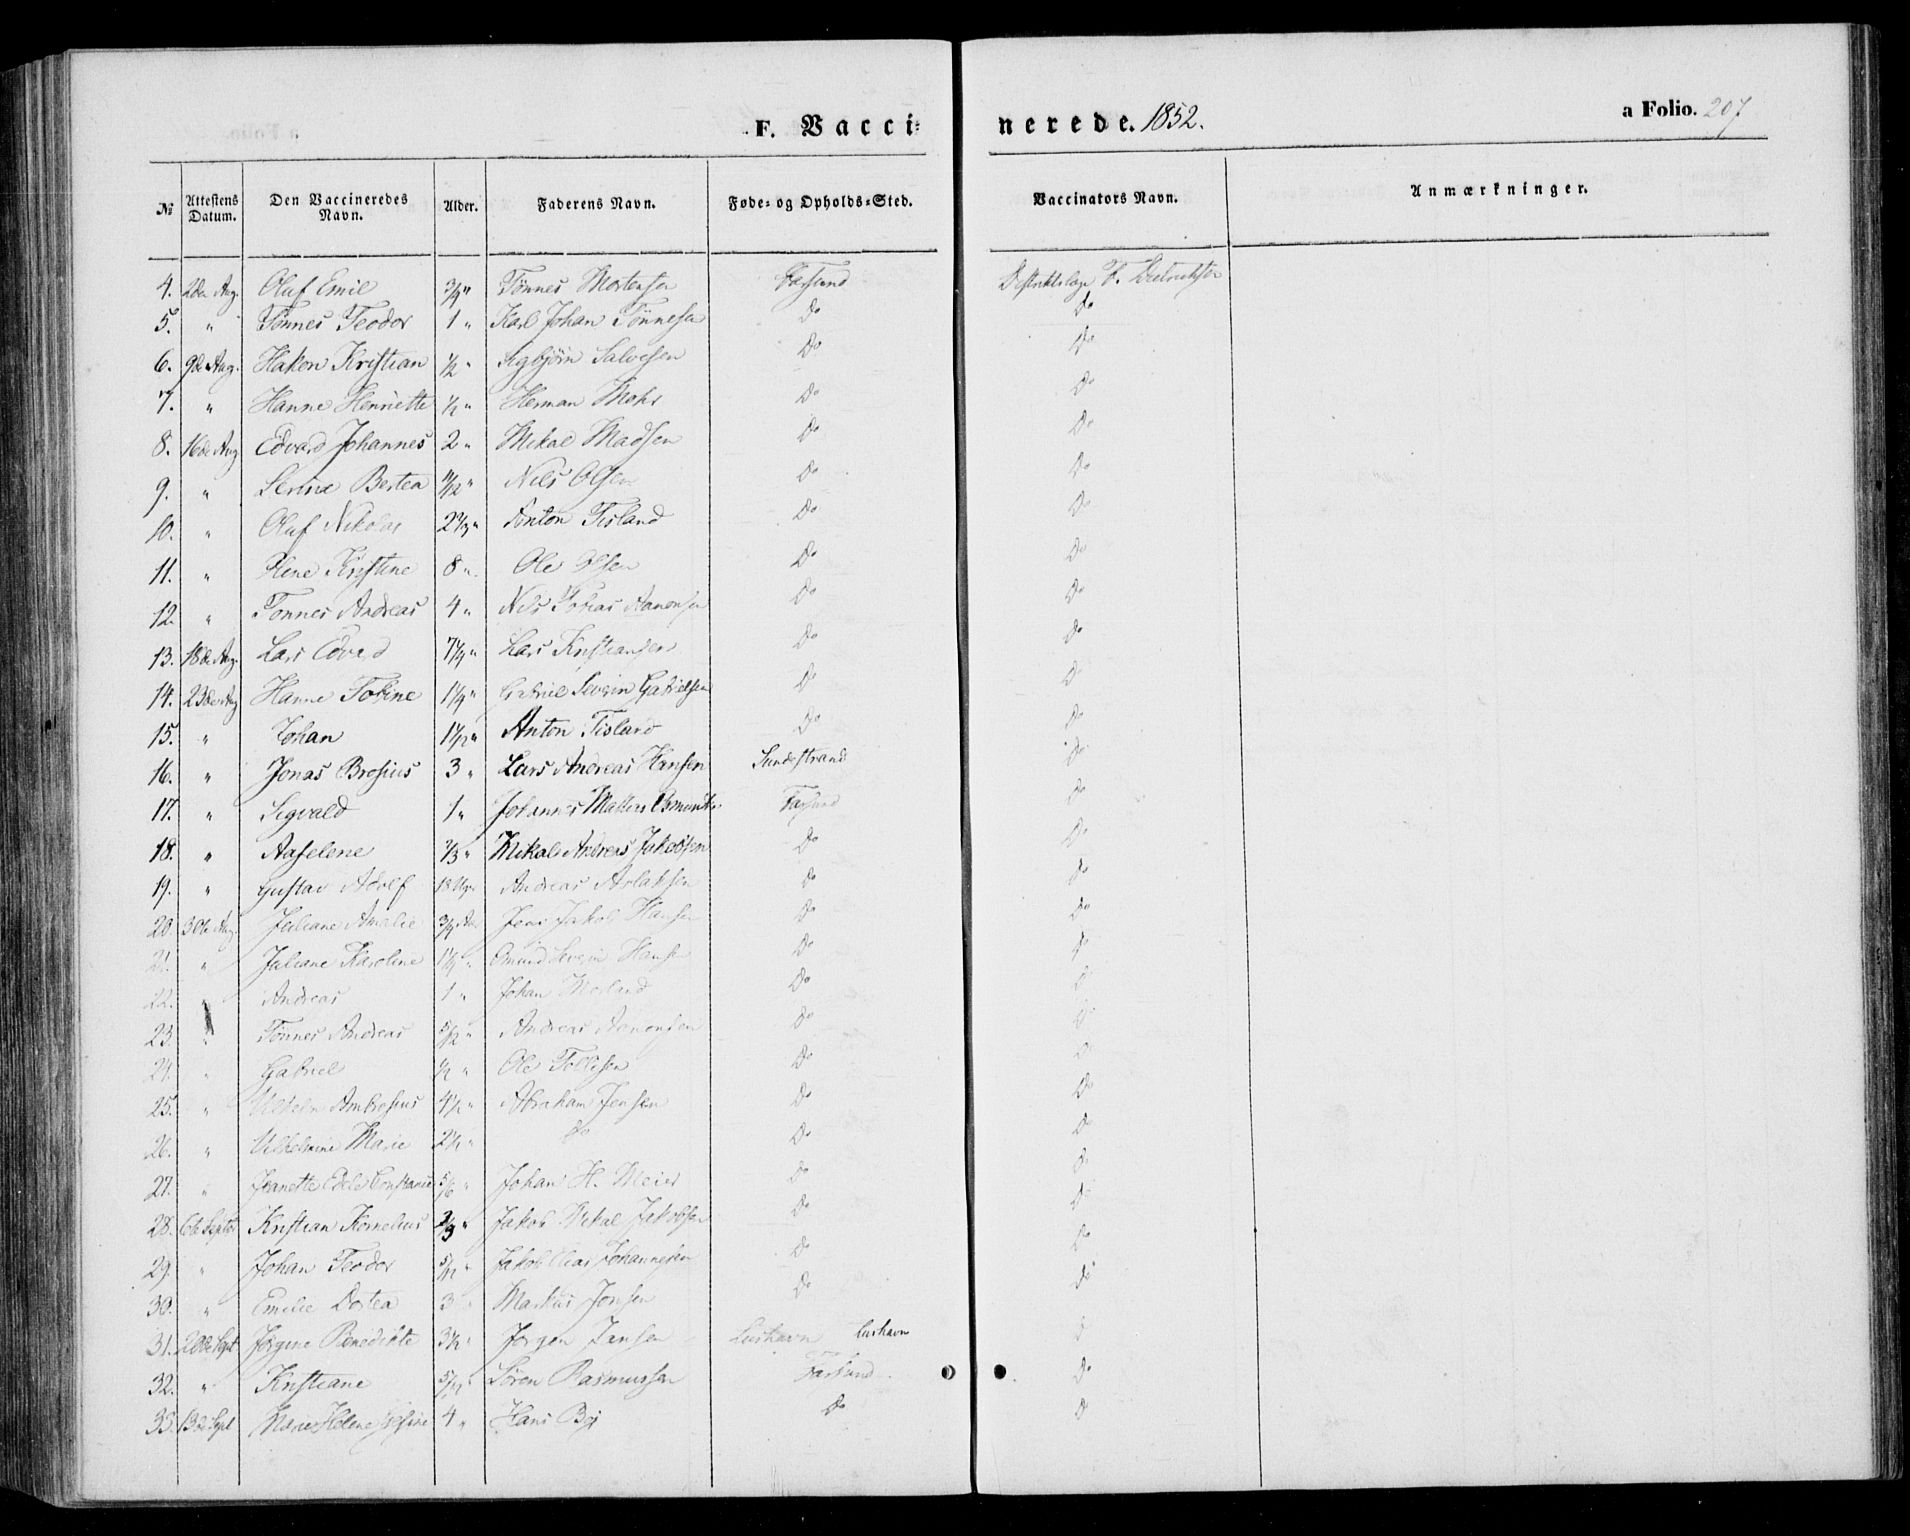 F. Vacci-
nerede. 1852.
a Folio. 207
№ Attestens Datum. Den Vaccineredes Navn. Alder. Faderens Navn. Føde- og Opholds-Sted. Vaccinators Navn. Anmærkninger.
4. 2de Aug. Oluf Emil 3/4 " Tønnes Mortensen Farsund F.
5. " Tønnes Teodor 1 " Karl Johan Tönnesen Do Do
6. 9de Aug. Hakon Kristian 1/2 " Sigbjørn Salvesen Do Do
7. " Hanne Henriette 1/2 " Herman Mohr Do Do
8. 16de Aug Edvard Johannes 2 " Mikal Madsen Do Do
9. " Serine Bertea 11/12 " Nils Olsen Do Do
10. " Oluf Nikolai 2 2/3 " Anton Tisland Do Do
11. " Kristine 8 " Ole Olsen Do Do
12. " Tønnes Andreas 4 " Nils Tobias Aanonsen Do Do
13. 18de Aug. Lars Edvard 7 1/4 " Lars Kristiansen Do Do
14. 23de Aug Hanne Tobine 1 1/4 " Gabriel Severin Gabrielsen Do Do
15. " Johan 1 1/12 " Anton Tisland Do Do
16. " Jonas Brosius 3 " Lars Andreas Hansen Sundestrand Do
17. " Sigvald 1 " Johannes Farsund Do
18. " Aaselene 2/3 " Mikal Andreas Jakobsen Do Do
19. " Gustav Adolf 18 Ugr Andreas Aslaksen Do Do
20. 30de Aug. Juliane Amalie 3/4 Aar Jens Jakob Hansen Do Do
21. " Juliane Karoline " Omund Severin Hansen Do Do
22. " Andreas 1 " Johan Do Do
23. " Tønnes Andreas 5/12 " Andreas Aanonsen Do Do
24. " Gabriel 1/2 " Ole Tollisen Do Do
25. " Vilhelm Ambrosius 4 1/2 " Abraham Jensen Do Do
26. " Vilhelmine Marie 2 1/2 " Do Do Do
27. " Jeanette Edele Constance 5/6 " Johan H. Meier Do Do
28. 6te Septbr Kristian Kornelius 2/3 " Jakob Mikal Jakobsen Do Do
29. " Johan Teodor 5/12 " Jakob Elias Johannesen Do Do
30. " Emilie Dortea 3 " Markus Jonsen Do Do
31. 20de Sept. Jørgine Benedikte 3 1/2 " Jørgen Jansen Lushavn Lushavn Do
32. " Kristiane 5/12 " Søren Rasmussen Farsund Do
33. 13de Sept Marie Helene 4 " Hans Do Do